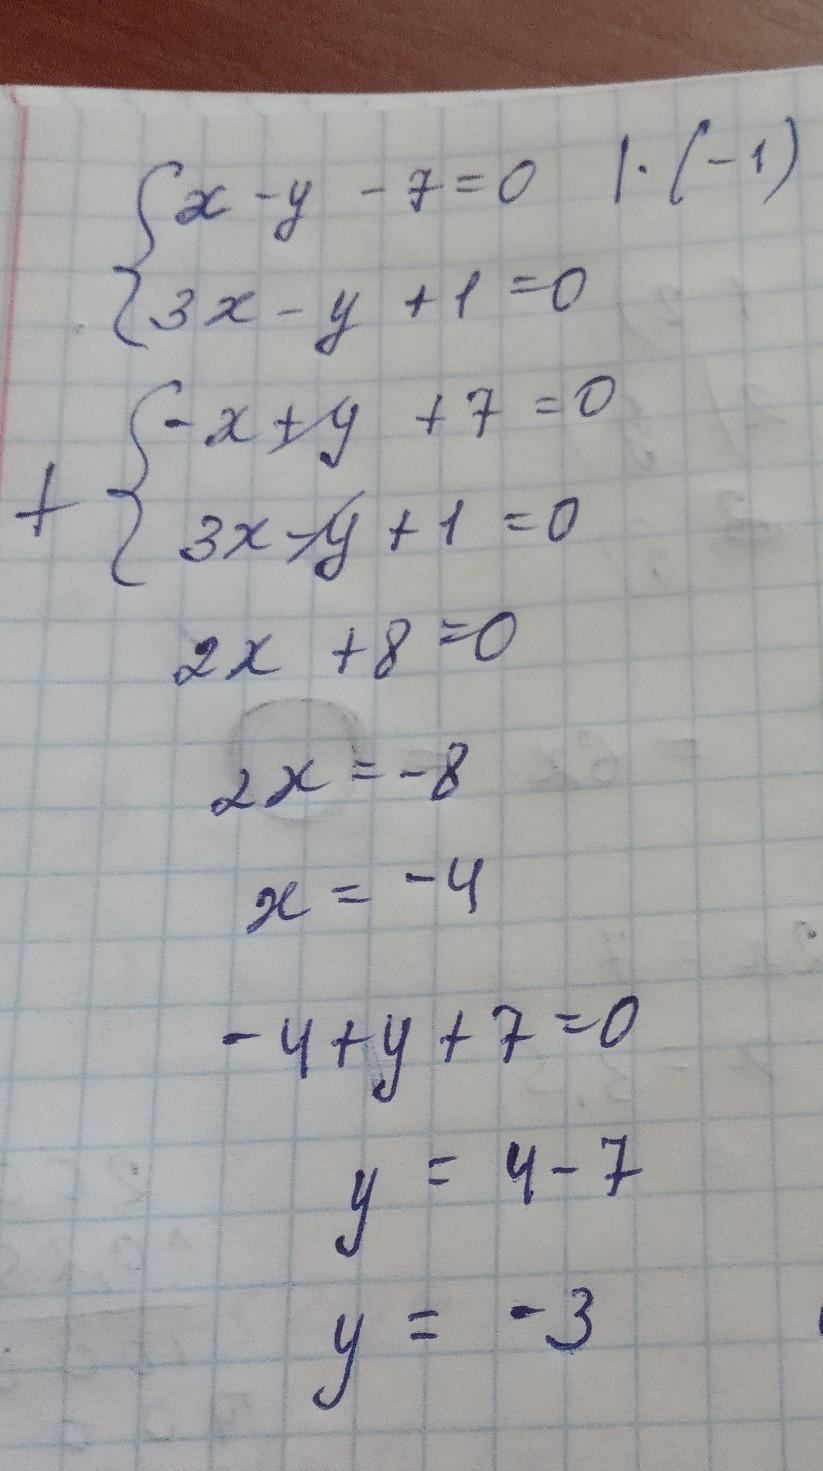 {x - y - 7 = 0 | · (-1)
{3x - y + 1 = 0
{-x + y + 7 = 0
+ {3x - y + 1 = 0
2x + 8 = 0
2x = -8
x = -4
-4 + y + 7 = 0
y = 4 - 7
y = -3